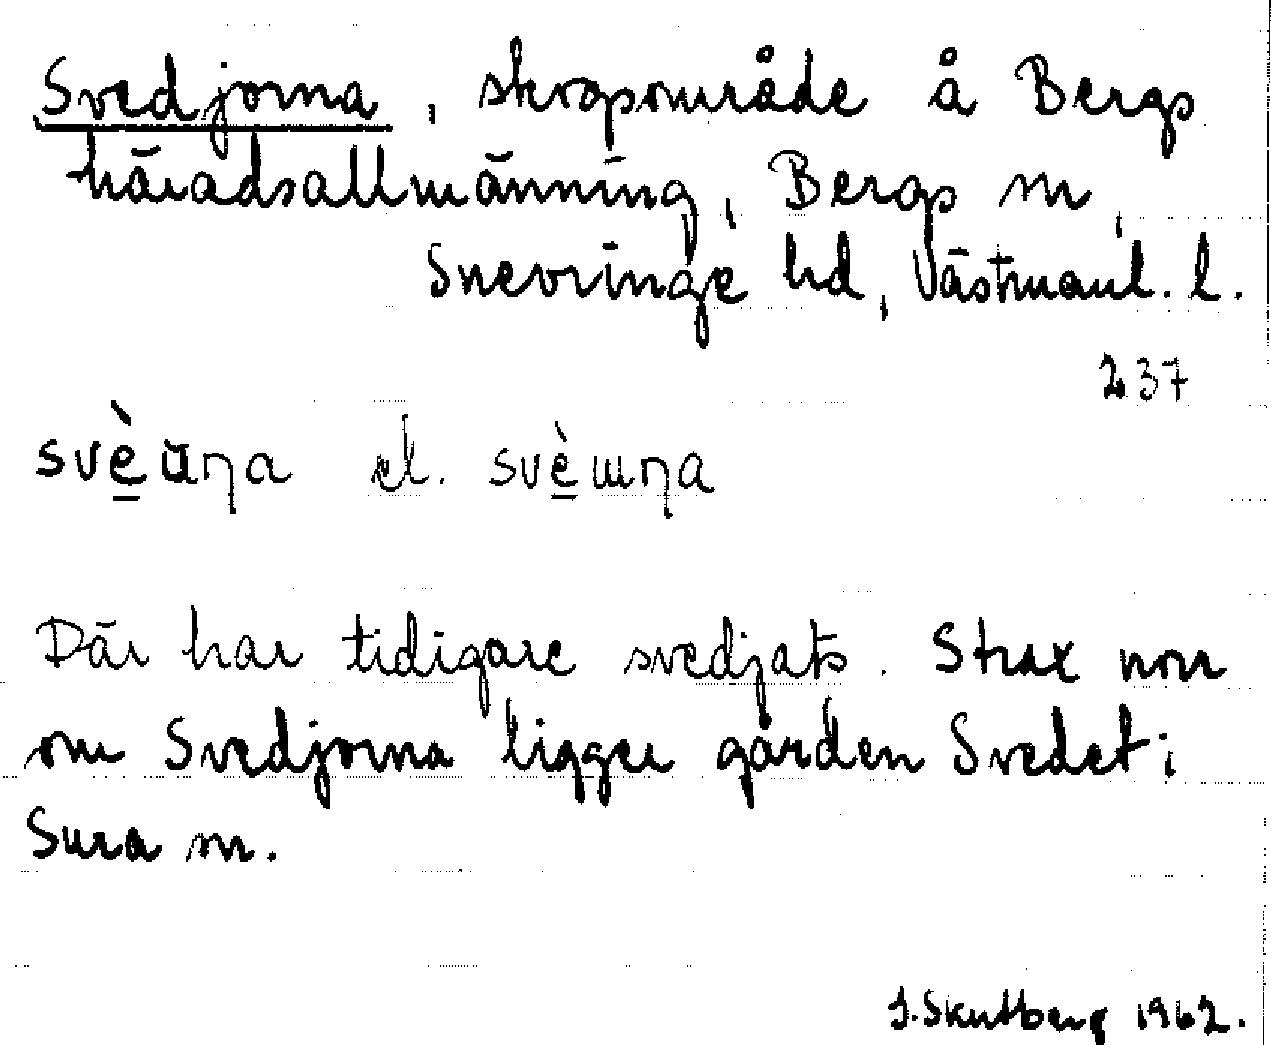 Svedjorna, skogsområde å Bergs
häradsallmänning, Bergs sn,
Snevringe hd, Västmanl. l.
237
svè̱ɯɳa el. svè̱ɯɳa
Där har tidigare svedjats. Strax norr
om Svedjorna ligger gården Svedet i
Sura sn.
J. Skutberg 1962.